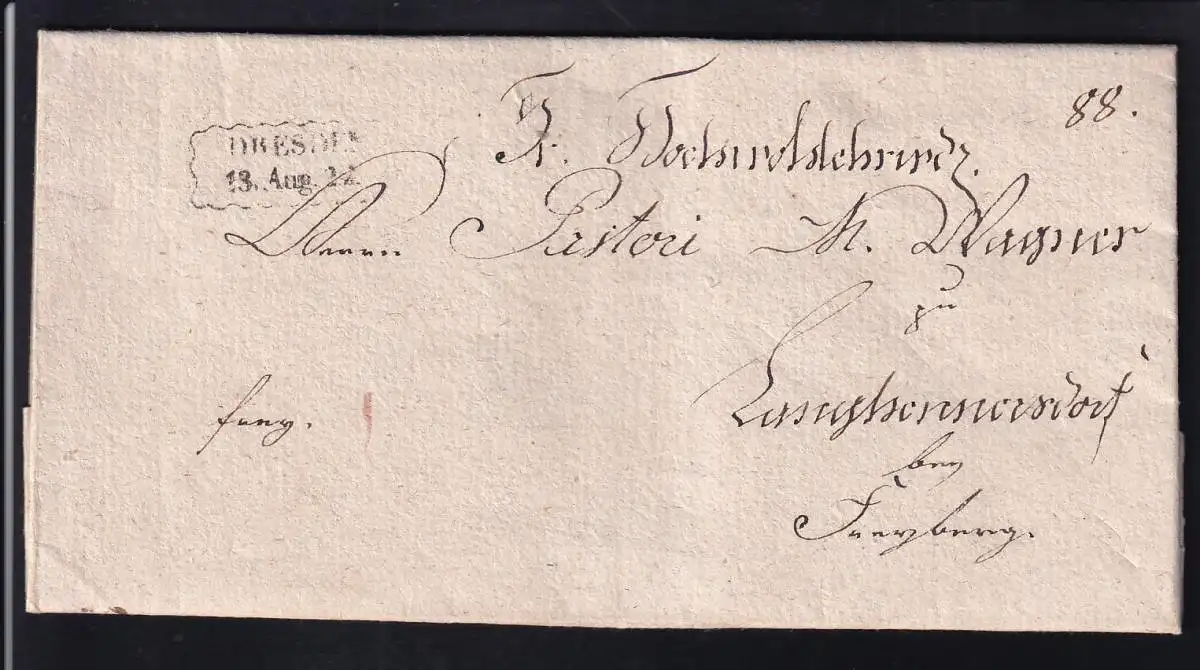 88.
DRESDEN
13. Aug. 22.
Sr. Hochwohlehrwrd.
Herrn Pastori M. Wagner
zu
Langhennersdorf
frey.
bey
Freyberg.